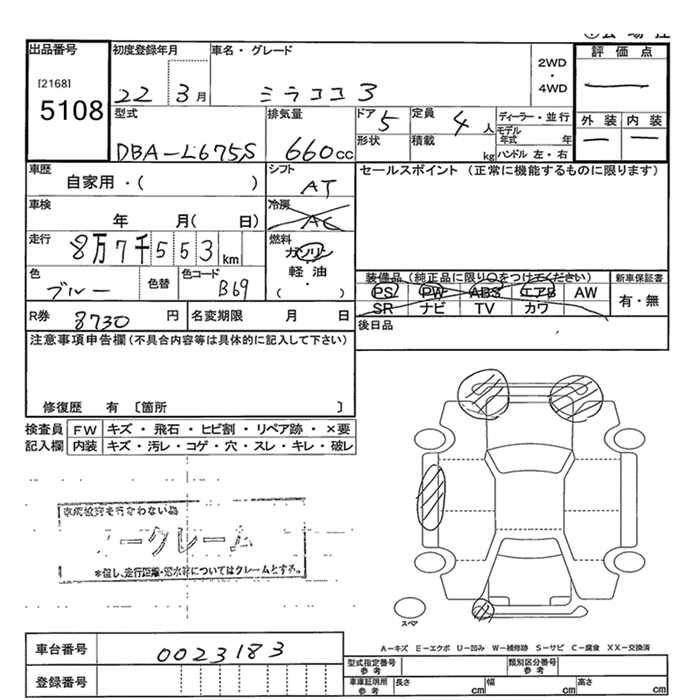 出品番号
[2168]
5108
初度登録年月
22 3月
車名・グレード
ミラココア
2WD
・
4WD
評価点
―
外装 内装
― ―
型式
DBA-L675S
排気量
660cc
ドア
5
形状
定員
4人
積載
kg
ディーラー・並行
モデル
年式 年
ハンドル 左・右
車歴
自家用・( )
シフト
AT
セールスポイント (正常に機能するものに限ります)
車検
年 月( 日)
冷房
AC
走行
8万7千553km
燃料
ガソリン
軽油
( ・ )
色
ブルー
色替
色コード
B69
装備品 (純正品に限り○をつけてください)
PS PW ABS エアB AW
SR ナビ TV カワ
新車保証書
有・無
R券
8730円
名変期限 月 日
後日品
注意事項申告欄 (不具合内容等は具体的に記入して下さい)
修復歴 有 〔箇所 〕
検査員
記入欄
FW キズ・飛石・ヒビ割・リペア跡・×要
内装 キズ・汚レ・コゲ・穴・スレ・キレ・破レ
ークレーム
*但し、走行距離・冠水等についてはクレームとする。
スペア
A―キズ E―エクボ U―凹み W―補修跡 S―サビ C―腐食 XX―交換済
車台番号
0023183
登録番号
型式指定番号
参考
類別区分番号
参考
車庫証明用
参考
長さ cm 幅 cm 高さ cm